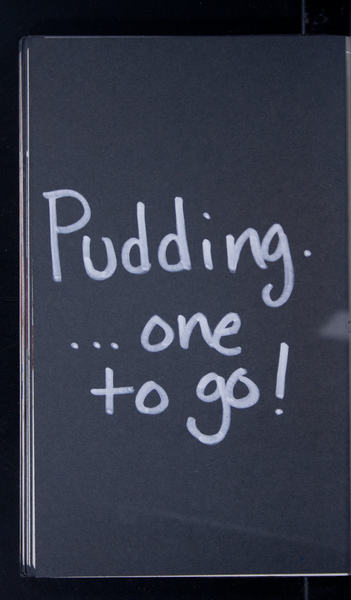 Pudding.
... one
to go!